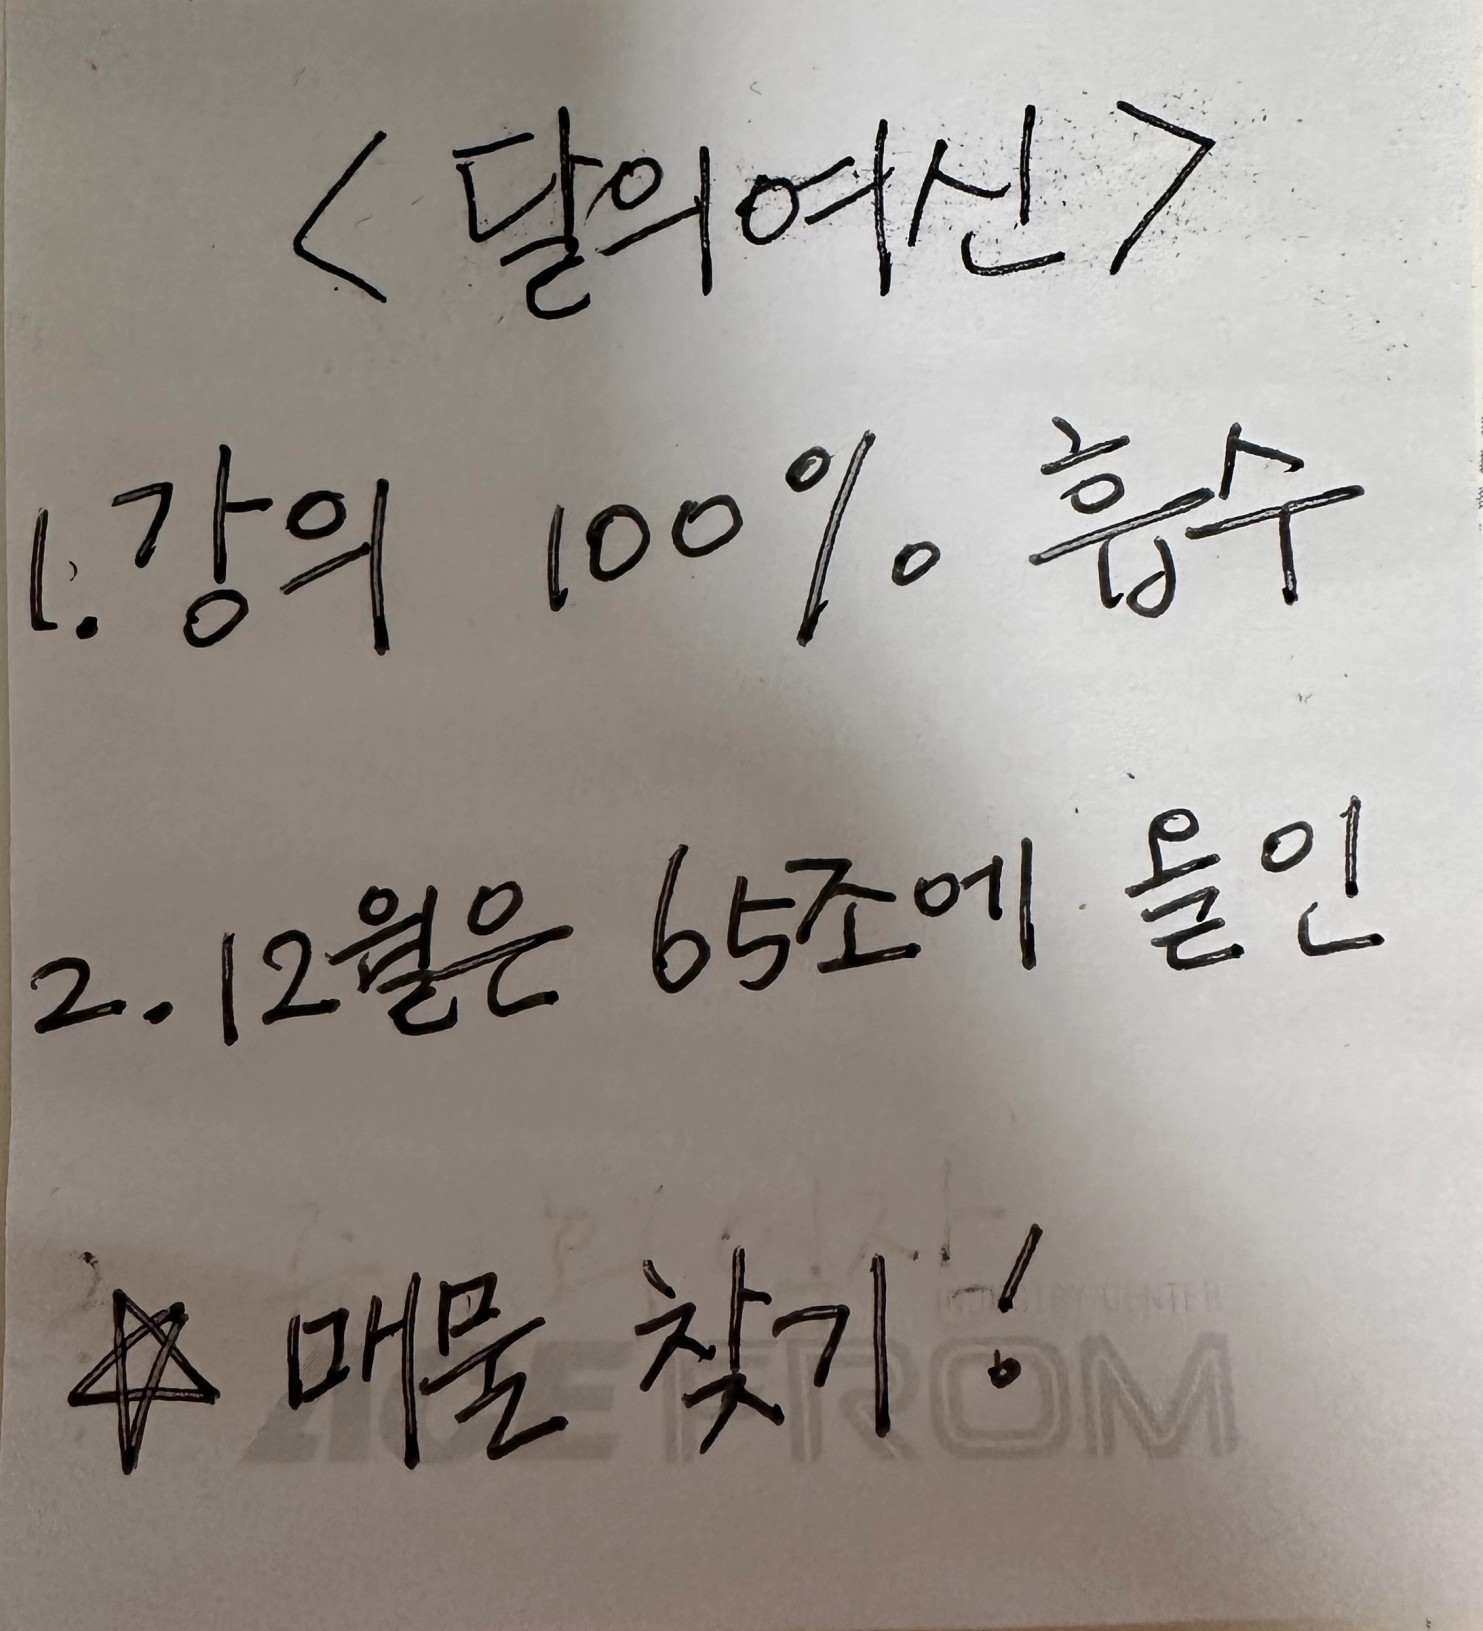 <달의여신>
1. 강의 100% 흡수
2. 12월은 65조에 올인
☆ 매물 찾기!